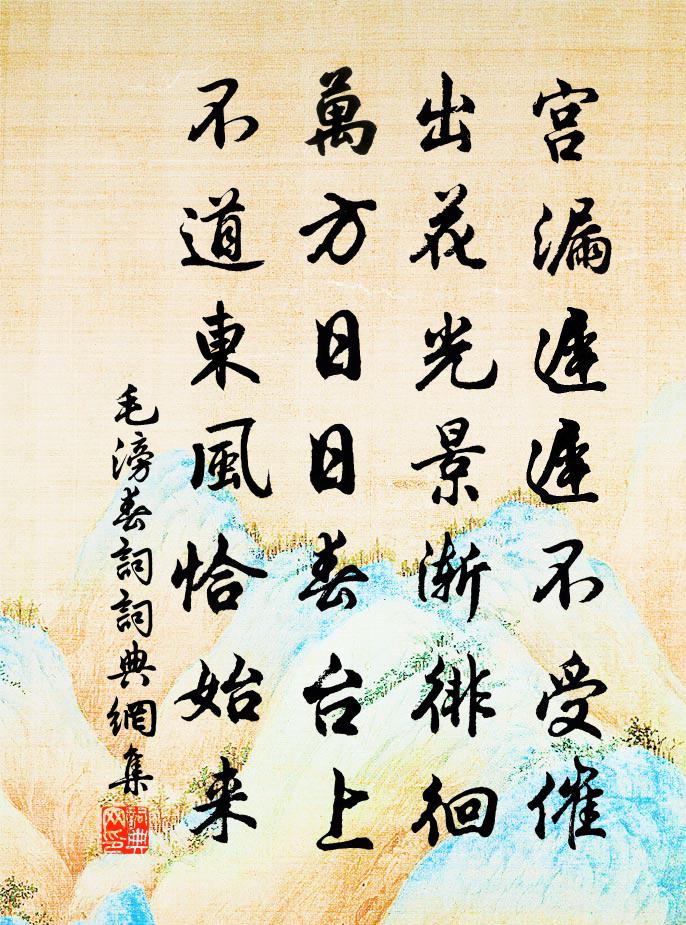 宫漏遲遲不受催
出花光景漸徘徊
萬方日日春台上
不道東風恰始来
毛滂春詞詞典網集
詞典网印